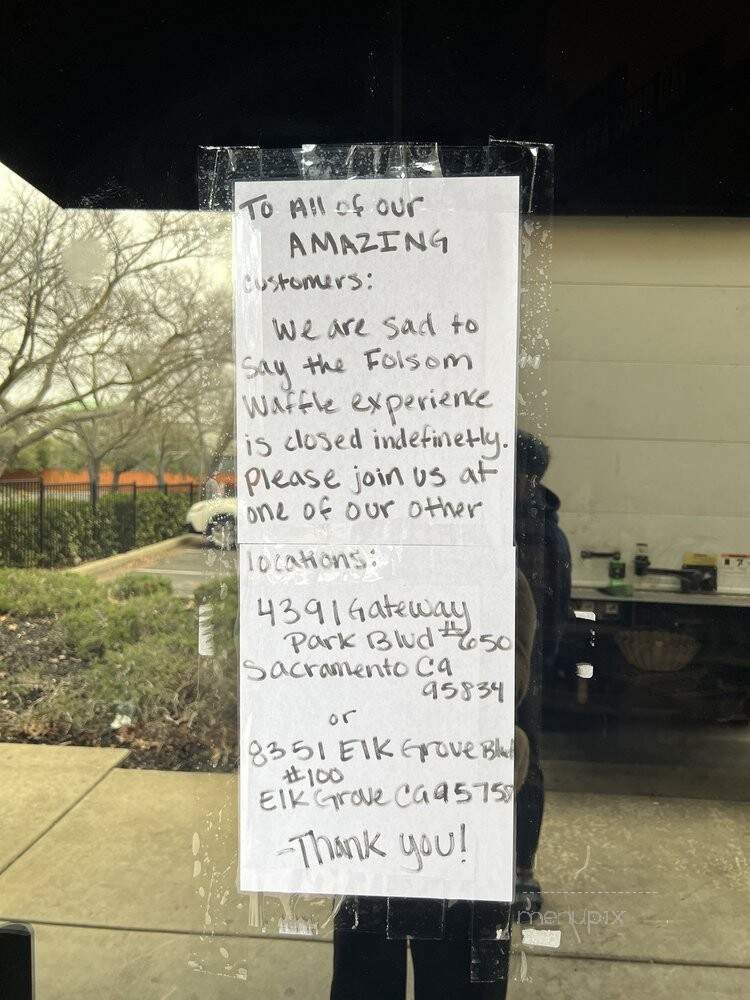 To All of our
AMAZING
customers:
We are sad to
say the Folsom
Waffle experience
is closed indefinetly.
Please join us at
one of our other
locations:
4391 Gateway
Park Blvd #650
Sacramento Ca
95834
or
8351 Elk Grove Blvd
#100
Elk Grove Ca 95758
-Thank you!
menupix